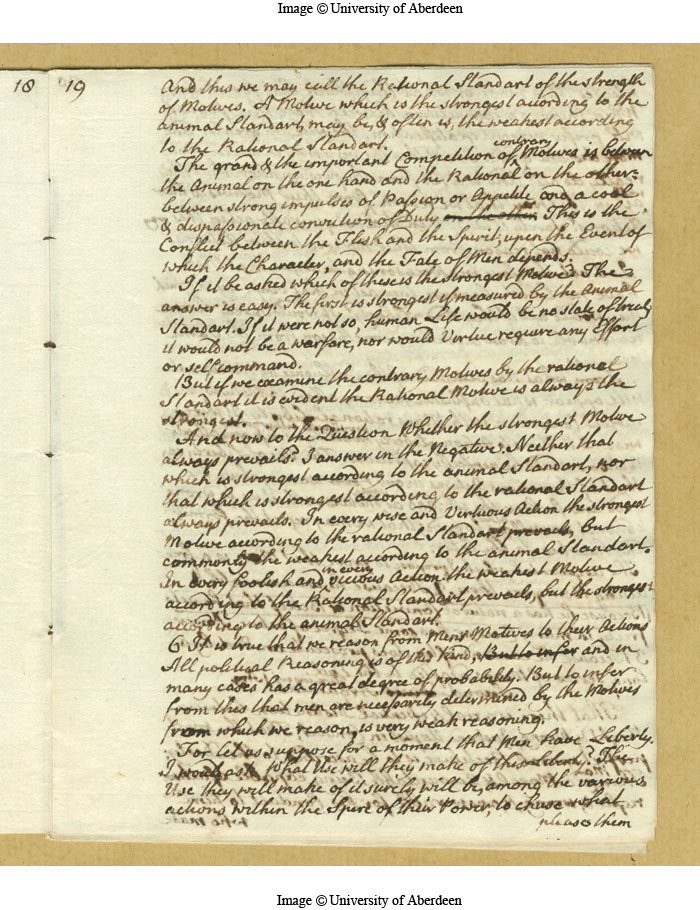 Image © University of Aberdeen
18
19
And this we may call the Rational Standart of the strength
of Motives. A Motive which is the strongest according to the
animal Standart, may be, & often is, the weakest according
to the Rational Standart.
contrary
The grand & the important Competition of Motives is between
the Animal on the one hand and the Rational on the other
between strong impulses of Passion or Appetite and a cool
& dispassionate conviction of Duty on the other. This is the
Conflict between the Flesh and the Spirit, upon the Event of
which the Character, and the Fate of Men depends.
If it be asked which of these is the strongest Motive? The
answer is easy. The first is strongest if measured by the Animal
Standart. If it were not so, human Life would be no state of tryal;
it would not be a warfare, nor would Virtue require any Effort
or self command.
But if we examine the contrary Motives by the rational
Standart it is evident the Rational Motive is always the
strongest.
And now to the Question Whether the strongest Motive
always prevails? I answer in the Negative. Neither that
which is strongest according to the animal Standart, nor
that which is strongest according to the rational Standart
always prevails. In every wise and Virtuous Action the strongest
Motive according to the rational Standart prevails, but
commonly the weakest according to the animal Standart.
in every
In every foolish and vicious Action the weakest Motive
according to the Rational Standart prevails, but the strongest
according to the animal Standart.
6 It is true that we reason from Mens Motives to their Actions
All political Reasoning is of this kind, But to infer and in
many cases has a great degree of probability. But to infer
from this that men are necessarily determined by the Motives
from which we reason, is very weak reasoning.
For let us suppose for a moment that Men have Liberty.
I would ask What Use will they make of this Liberty? The
Use they will make of it surely will be, among the various
actions within the Spere of their Power, to chuse what
pleases them
Image © University of Aberdeen